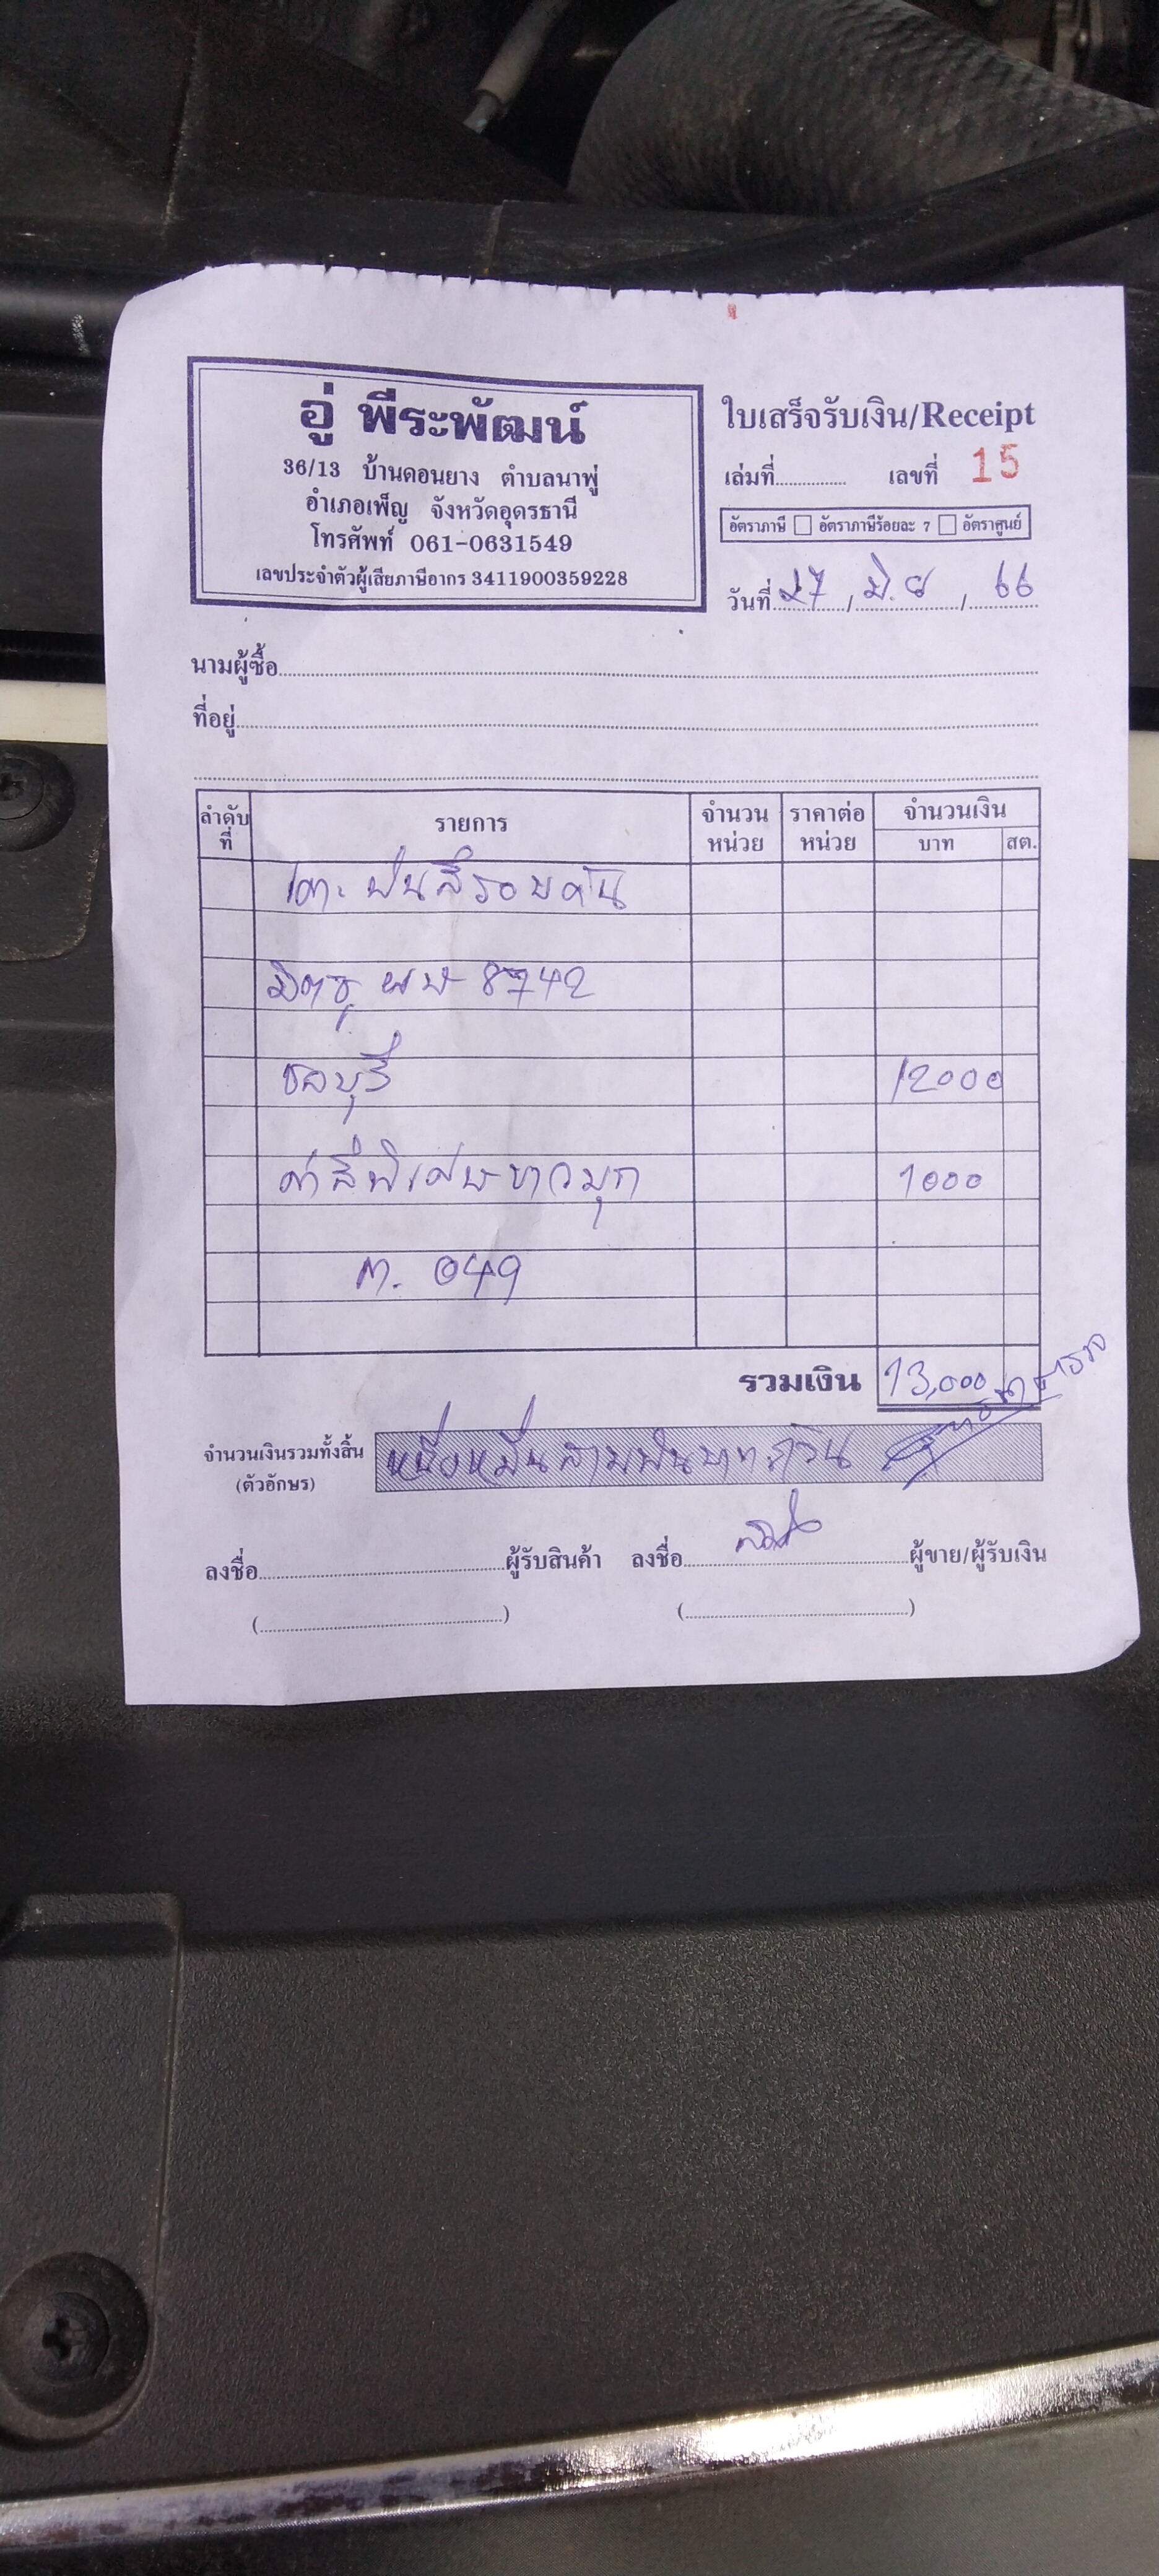 อู่ พีระพัฒน์
36/13 บ้านดอนยาง ตำบลนาพู่
อำเภอเพ็ญ จังหวัดอุดรธานี
โทรศัพท์ 061-0631549
เลขประจำตัวผู้เสียภาษีอากร 3411900359228
ใบเสร็จรับเงิน/Receipt
เล่มที่............... เลขที่ 15
อัตราภาษี อัตราภาษีร้อยละ 7 อัตราศูนย์
วันที่ 27 / มิ.ย / 66
นามผู้ซื้อ
ที่อยู่
ลำดับที่ รายการ จำนวนหน่วย ราคาต่อหน่วย จำนวนเงิน
บาท สต.
เคาะ พ่นสีรอบคัน
มิตซู ผษ 8742
ชลบุรี 12000
ค่าสีพิเศษขาวมุก 1000
ต. 049
รวมเงิน 13,000
จำนวนเงินรวมทั้งสิ้น หนึ่งหมื่นสามพันบาทถ้วน
(ตัวอักษร)
ลงชื่อ ผู้รับสินค้า ลงชื่อ ผู้ขาย/ผู้รับเงิน